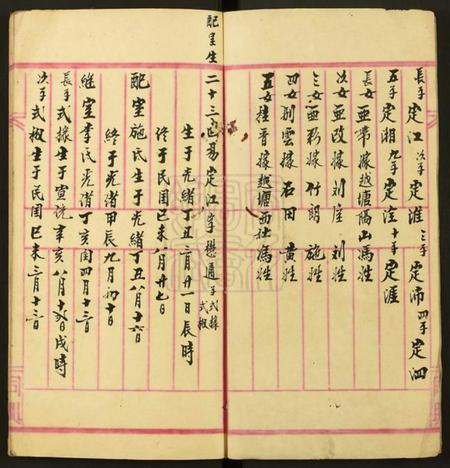 長子定江 次子定淮 三子定沛 四子定泗
五子定湘 九子定洼 十子定涯
長女亜带嫁越塘隔山馮姓
次女亜改嫁刘崖 刘姓
三女亜彩嫁竹朗 施姓
四女別雲嫁石田 黄姓
五女擅音嫁越塘西社馮姓
二十三世易定江字懋通 子式操 式椒
配室生
生于光緒丁丑二月廿一日辰時
終于民国己未八月廿七日
配室施氏生于光緒丁丑八月十六日
終于光渚甲辰九月初十日
継室李氏光渚丁亥闰四月十三日
長子式操生于宣統辛亥八月十 日戌時
次子式椒生于民国己未三月十三日